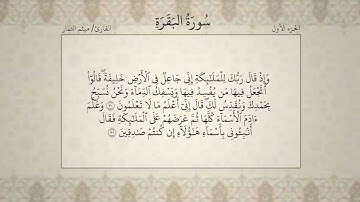 الجزء الأول
سُورَةُ البَقَرَةِ
القارئ/ ميثم التمار
وَإِذْ قَالَ رَبُّكَ لِلْمَلَٰٓئِكَةِ إِنِّى جَاعِلٌ فِى ٱلْأَرْضِ خَلِيفَةً ۖ قَالُوٓا۟
أَتَجْعَلُ فِيهَا مَن يُفْسِدُ فِيهَا وَيَسْفِكُ ٱلدِّمَآءَ وَنَحْنُ نُسَبِّحُ
بِحَمْدِكَ وَنُقَدِّسُ لَكَ ۖ قَالَ إِنِّىٓ أَعْلَمُ مَا لَا تَعْلَمُونَ ٣٠ وَعَلَّمَ
ءَادَمَ ٱلْأَسْمَآءَ كُلَّهَا ثُمَّ عَرَضَهُمْ عَلَى ٱلْمَلَٰٓئِكَةِ فَقَالَ
أَنۢبِـُٔونِى بِأَسْمَآءِ هَٰٓؤُلَآءِ إِن كُنتُمْ صَٰدِقِينَ ٣١